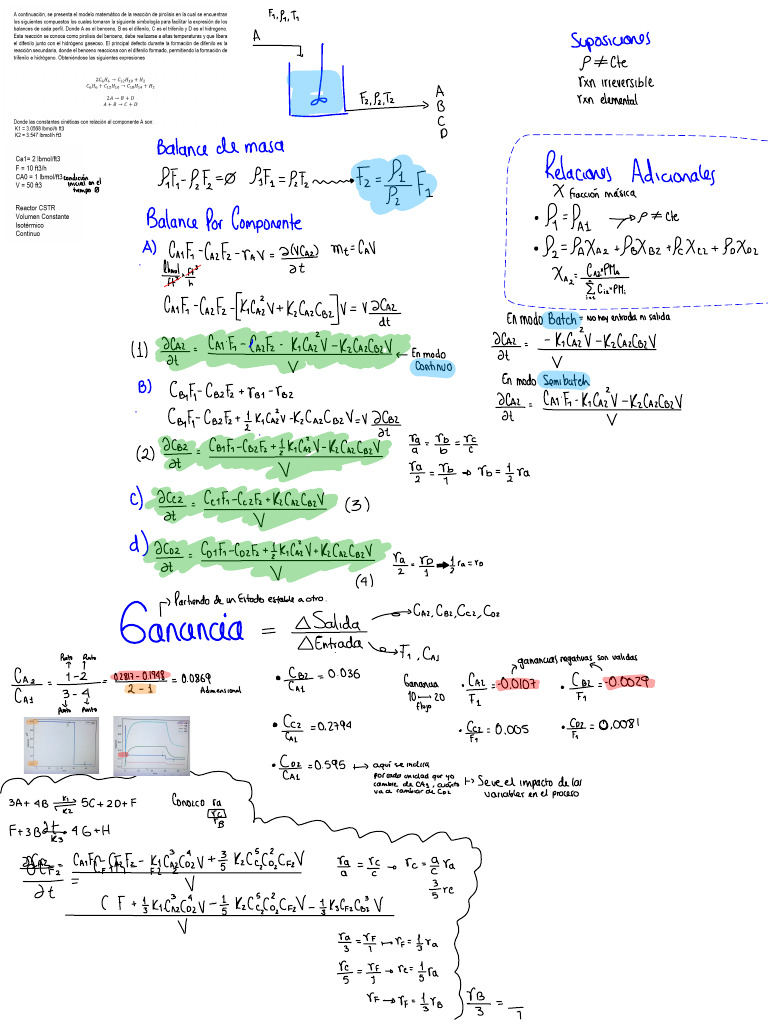 A continuación, se presenta el modelo matemático de la reacción de pirólisis en la cual se encuentran
los siguientes compuestos los cuales tomaran la siguiente simbología para facilitar la expresión de los
balances de cada perfil. Donde A es el benceno, B es el difenilo, C es el trifenilo y D es el hidrogeno.
Esta reacción se conoce como pirolisis del benceno, debe realizarse a altas temperaturas y que libera
el difenilo junto con el hidrógeno gaseoso. El principal defecto durante la formación de difenilo es la
reacción secundaria, donde el benceno reacciona con el difenilo formado, permitiendo la formación de
trifenilo e hidrógeno. Obteniéndose las siguientes expresiones
2C6H6 → C12H10 + H2
C6H6 + C12H10 → C18H14 + H2
2A → B + D
A + B → C + D
Donde las constantes cinéticas con relación al componente A son:
K1 = 3.0568 lbmol/h ft3
K2 = 3.547 lbmol/h ft3
Ca1= 2 lbmol/ft3
F = 10 ft3/h
CA0 = 1 lbmol/ft3 condición inicial en el tiempo 0
V = 50 ft3
Reactor CSTR
Volumen Constante
Isotérmico
Continuo
F1, ρ1, T1
A
F2, ρ2, T2
A
B
C
D
Suposiciones
ρ ≠ Cte
rxn irreversible
rxn elemental
Balance de masa
ρ1F1 - ρ2F2 = Ø ρ1F1 = ρ2F2 F2 = ρ1/ρ2 F1
Relaciones Adicionales
X fracción másica
• ρ1 = ρA1 → ρ ≠ Cte
• ρ2 = ρAXA2 + ρBXB2 + ρCXC2 + ρDXD2
XA2 = CA2*PMA / Σ Ci2*PMi
Balance Por Componente
A) CA1F1 - CA2F2 - rAV = ∂(VCA2)/∂t mt = CAV
lbmol/ft³ * ft³/h
CA1F1 - CA2F2 - [K1CA2²V + K2CA2CB2]V = V ∂CA2/dt
(1) ∂CA2/∂t = CA1·F1 - CA2F2 - K1CA2²V - K2CA2CB2V / V ← En modo Continuo
En modo Batch = no hay entrada ni salida
∂CA2/∂t = -K1CA2²V - K2CA2CB2V / V
En modo Semibatch
∂CA2/∂t = CA1·F1 - K1CA2²V - K2CA2CB2V / V
B)
CB1F1 - CB2F2 + rB1 - rB2
CB1F1 - CB2F2 + 1/2 K1CA2²V - K2CA2CB2V = V ∂CB2/∂t
(2) ∂CB2/∂t = CB1F1 - CB2F2 + 1/2 K1CA2²V - K2CA2CB2V / V
ra/a = rb/b = rc/c
ra/2 = rb/1 → rb = 1/2 ra
c) ∂CC2/∂t = CC1F1 - CC2F2 + K2CA2CB2V / V (3)
d) ∂CD2/∂t = CD1F1 - CD2F2 + 1/2 K1CA2²V + K2CA2CB2V / V (4)
ra/2 = rD/1 → 1/2 ra = rD
Partiendo de un Estado estable a otro.
Ganancia = ΔSalida / ΔEntrada
CA2, CB2, CC2, CD2
F1, CA1
Punto Punto
CA2/CA1 = 1-2 / 3-4 = 0.2817 - 0.1948 / 2 - 1 = 0.0869
Adimensional
Punto Punto
• CB2/CA1 = 0.036
• CC2/CA1 = 0.2794
• CD2/CA1 = 0.595 → aquí se indica
por cada unidad que yo
cambie de CA1, cuánto
va a cambiar de CD2
Ganancia
10 → 20
flujo
ganancias negativas son validas
• CA2/F1 = -0.0107 • CB2/F1 = -0.0029
• CC2/F1 = 0.005 • CD2/F1 = 0.0081
Se ve el impacto de las
variables en el proceso
3A + 4B ⇌ 5C + 2D + F
K1
K2
K3
Conozco ra
rC
rB
ra/a = rc/c → rc = a/c ra
3/5 rc
ra/3 = rF/1 → rF = 1/3 ra
rc/5 = rF/1 → rc = 1/5 ra
rF → rF = 1/3 rB
rB/3 = /1